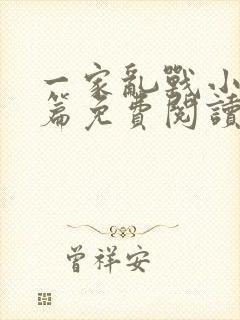 一家亂戰小
篇免費閱讀
曾祥安